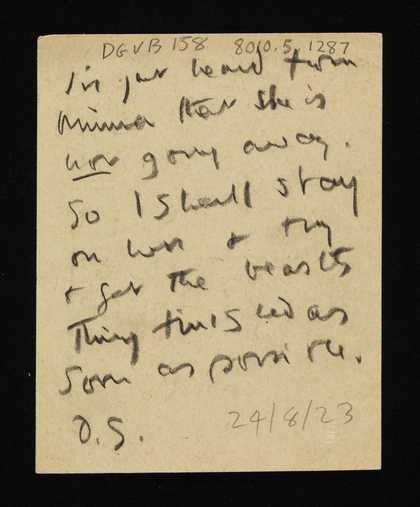 DGVB 158 8010.5.1287
I've just heard from
Minna that she is
not going away.
So I shall stay
on here & try
& get the beastly
thing finished as
soon as possible.
D.G.
24/8/23